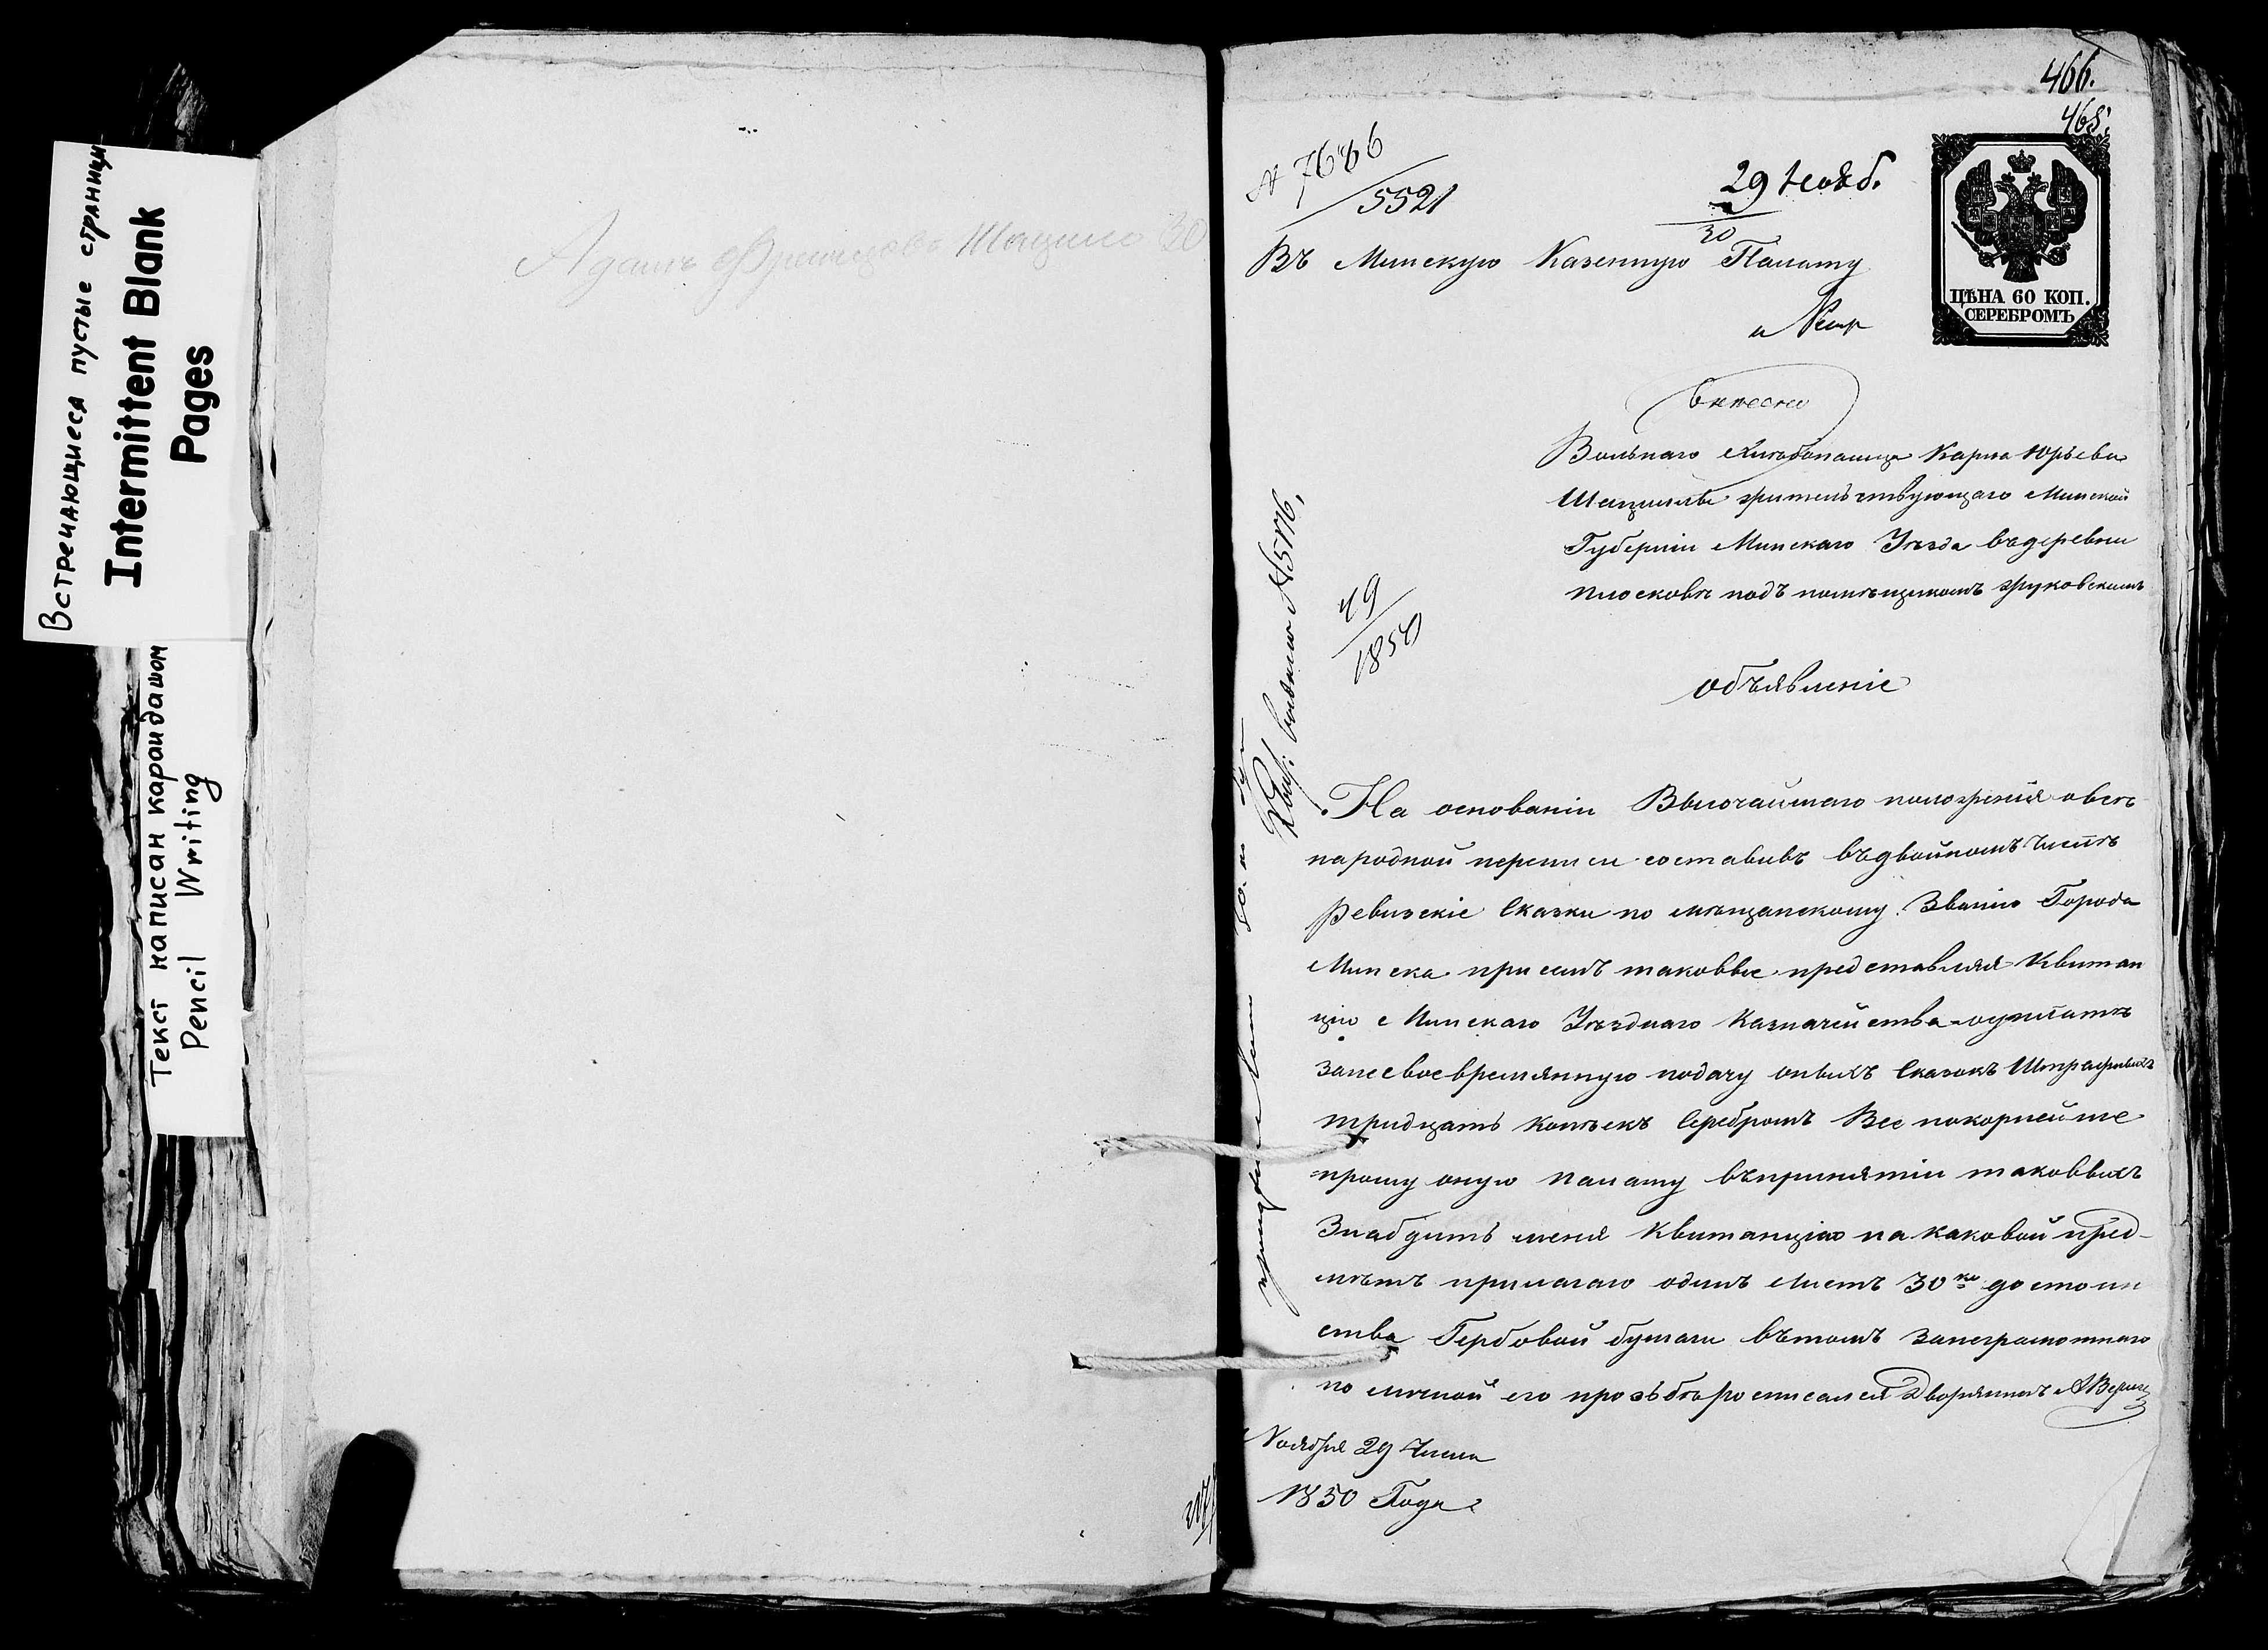 Встречающиеся пустые страницы
Intermittent Blank
Pages
Текст написан карандашом
Pencil Writing
Адамъ Шацило 30
466.
468.
№ 7686
5521
29 Нояб.
30
ЦѢНА 60 КОП.
СЕРЕБРОМЪ
Въ Минскую Казенную Палату
Вольнаго Хлебопашца Карла Юрьева
Шацилы жительствующаго Минской
Губерніи Минскаго Уѣзда въ деревни
подъ помѣщикомъ Жуковскимъ
49
1850
объявленіе
На основаніи Высочайшаго положенія о все
народной переписи составивъ въ двойномъ числѣ
Ревизскіе Сказки по мѣщанскому Званію Города
Минска при семъ таковые представляя Квитан
цію Минскаго Уѣзднаго Казначейства о уплатѣ
за несвоевремянную подачу оныхъ Сказокъ Штрафныхъ
тридцать копѣекъ Серебромъ Все покорнейше
прошу оную палату въ принятіи таковыхъ
Знабдить меня Квитанціею на каковой пред-
мѣтъ прилагаю одинъ листъ 30 ко достоин
ства Гербовой бумаги въ томъ за неграмотнаго
по личной его прозьбѣ росписался Дворянинъ
Ноября 29 Числа
1850 Года